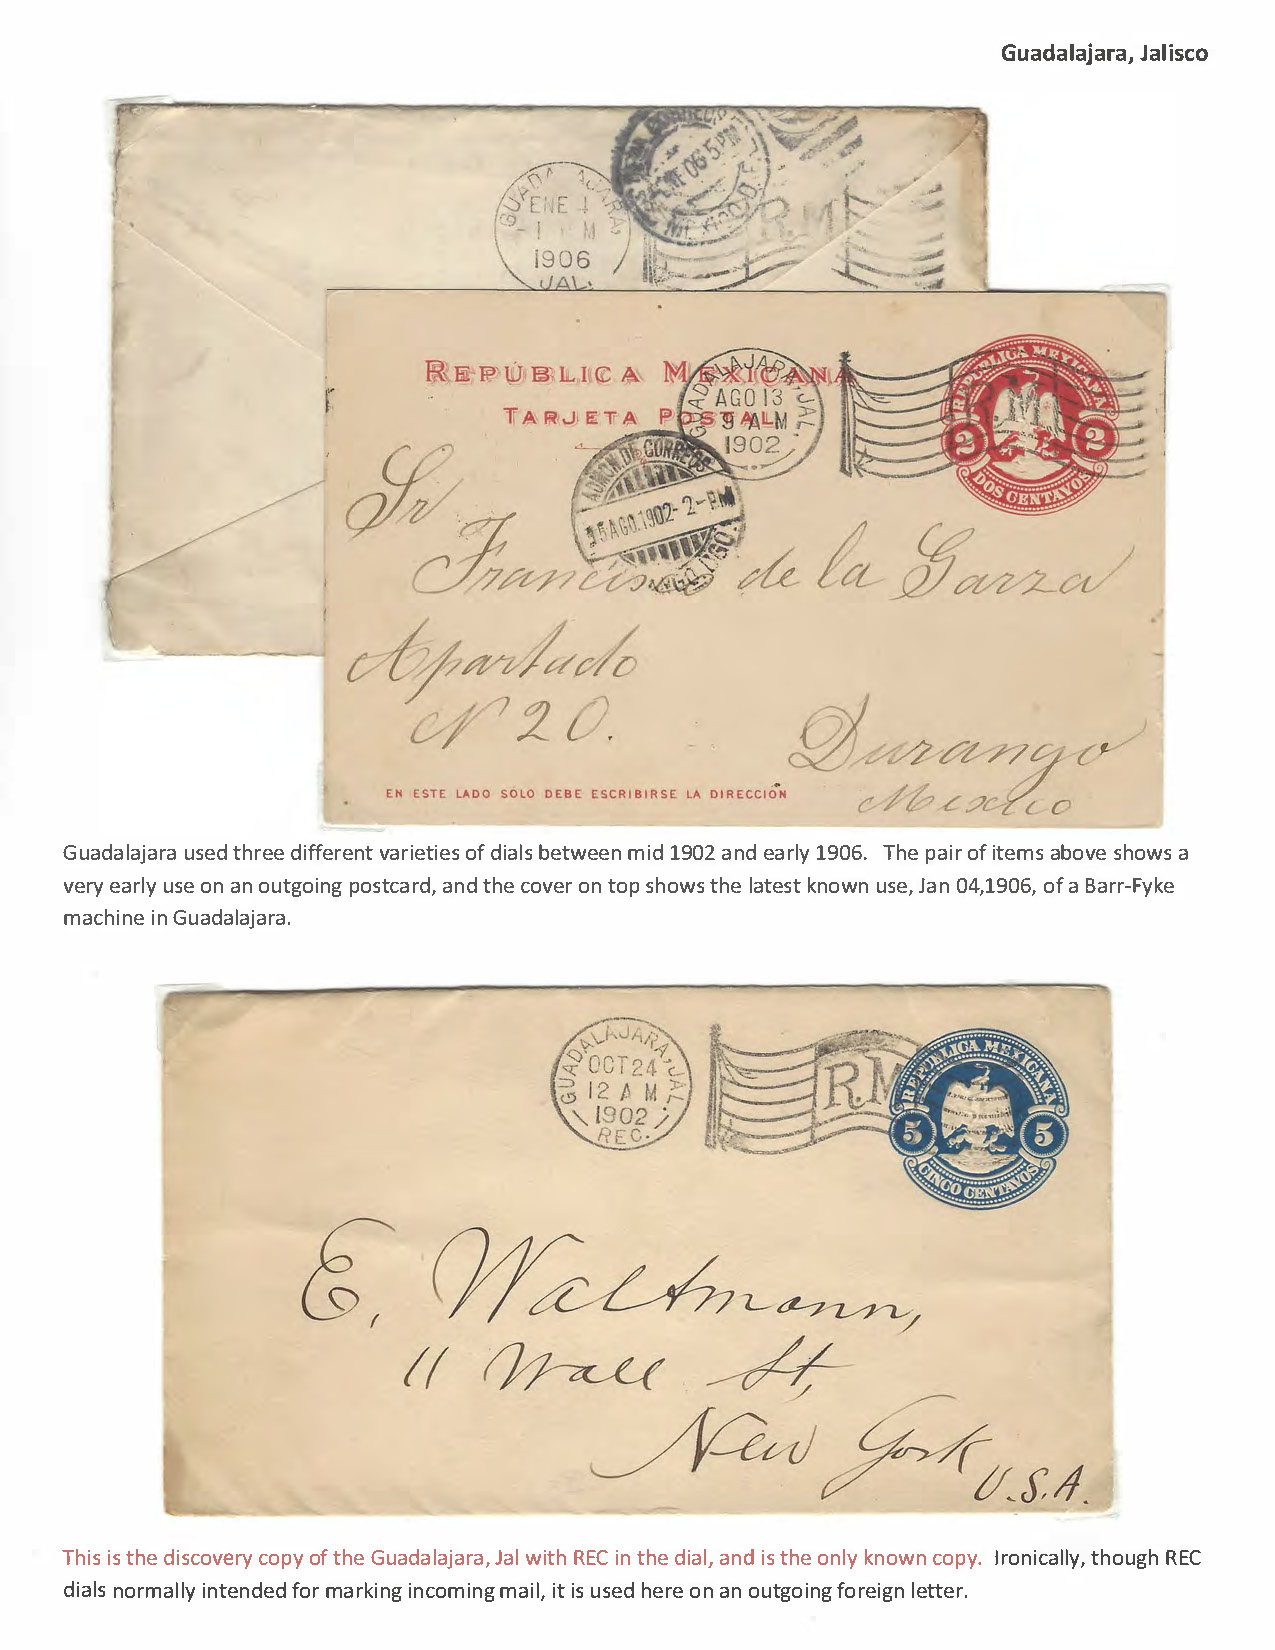 Guadalajara, Jalisco
ENE 4
1906
JAL.
MEXICO, D.F.
R.M
REPUBLICA MEXICANA
TARJETA POSTAL
GUADALAJARA, JAL.
AGO 13
9 A-M
1902
R.M
REPUBLICA MEXICANA
2 2
DOS CENTAVOS
ADMON. DE CORREOS
15 AGO. 1902 - 2 - P.M
DGO.
Sr
Francisco de la Garza
Apartado
N 20.
Durango
Mexico
EN ESTE LADO SÓLO DEBE ESCRIBIRSE LA DIRECCIÓN
Guadalajara used three different varieties of dials between mid 1902 and early 1906. The pair of items above shows a
very early use on an outgoing postcard, and the cover on top shows the latest known use, Jan 04,1906, of a Barr-Fyke
machine in Guadalajara.
GUADALAJARA, JAL.
OCT 24
12 A M
1902
REC.
R.M
REPUBLICA MEXICANA
5 5
CINCO CENTAVOS
E. Waltmann,
11 Wall St,
New York
U.S.A.
This is the discovery copy of the Guadalajara, Jal with REC in the dial, and is the only known copy. Ironically, though REC
dials normally intended for marking incoming mail, it is used here on an outgoing foreign letter.